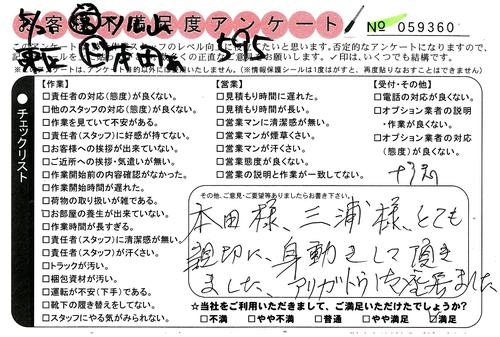 お客様不満足度アンケート
№ 059360
595
このアンケートは
スタッフのレベル向上に役立たいと思います。否定的なアンケートになりますので、
正直なご意見をお願いします。✓印は、いくつでも結構です。
(※情報保護シールは1度はがすと、再度貼りなおすことはできません)
チェックリスト
【作業】
□責任者の対応(態度)が良くない。
□他のスタッフの対応(態度)が良くない。
□作業を見ていて不安がある。
□責任者(スタッフ)に好感が持てない。
□お客様への挨拶が出来ていない。
□ご近所への挨拶・気遣いが無い。
□作業開始前の内容確認がなかった。
□作業開始時間が遅れた。
□荷物の取り扱いが雑である。
□お部屋の養生が出来ていない。
□作業時間が長すぎる。
□責任者(スタッフ)に清潔感が無い。
□責任者(スタッフ)が汗くさい。
□トラックが汚い。
□梱包資材が汚い。
□運転が不安(下手)である。
□靴下の履き替えをしてない。
□スタッフにやる気がみられない。
【営業】
□見積もり時間に遅れた。
□見積もり時間が長い。
□営業マンに清潔感が無い。
□営業マンが煙草くさい。
□営業マンが汗くさい。
□営業態度が良くない。
□営業の説明と作業が一致してない。
【受付・その他】
□電話の対応が良くない。
□オプション業者の説明
・作業が良くない。
□オプション業者の対応
(態度)が良くない。
その他、ご意見・ご要望等ありましたらお書き下さい。
本田様、三浦様、とても
親切に、身動きして頂き
ました、アリガトウ御座居ました
☆当社をご利用いただきまして、ご満足いただけたでしょうか?
□不満 □やや不満 □普通 □やや満足 ☑満足